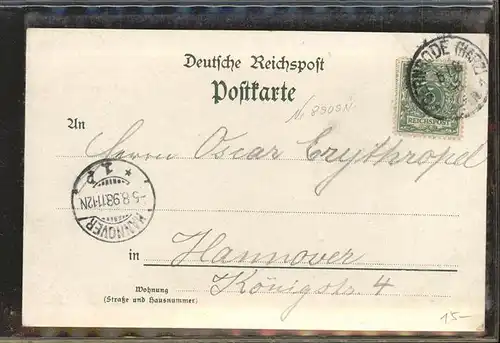 Deutsche Reichspost
Postkarte
An
Herrn Oscar Erythropel
in Hannover
Königstr. 4
Wohnung
(Straße und Hausnummer)
HANNOVER
-5.8.98.11-12N
* 1.P *
REICHSPOST
(HARZ)
15-